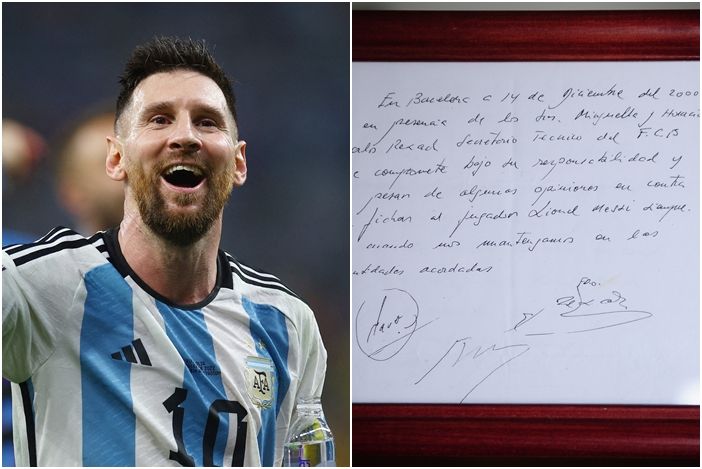 AFA
10
En Barcelona a 14 de Diciembre del 2000
en presencia de los Srs. Minguella y Horacio
Rexach Secretario Técnico del F.C.B
compromete bajo su responsabilidad y
pesar de algunas opiniones en contra
fichar al jugador Lionel Messi
cuando nos mantengamos en las
ntidades acordadas